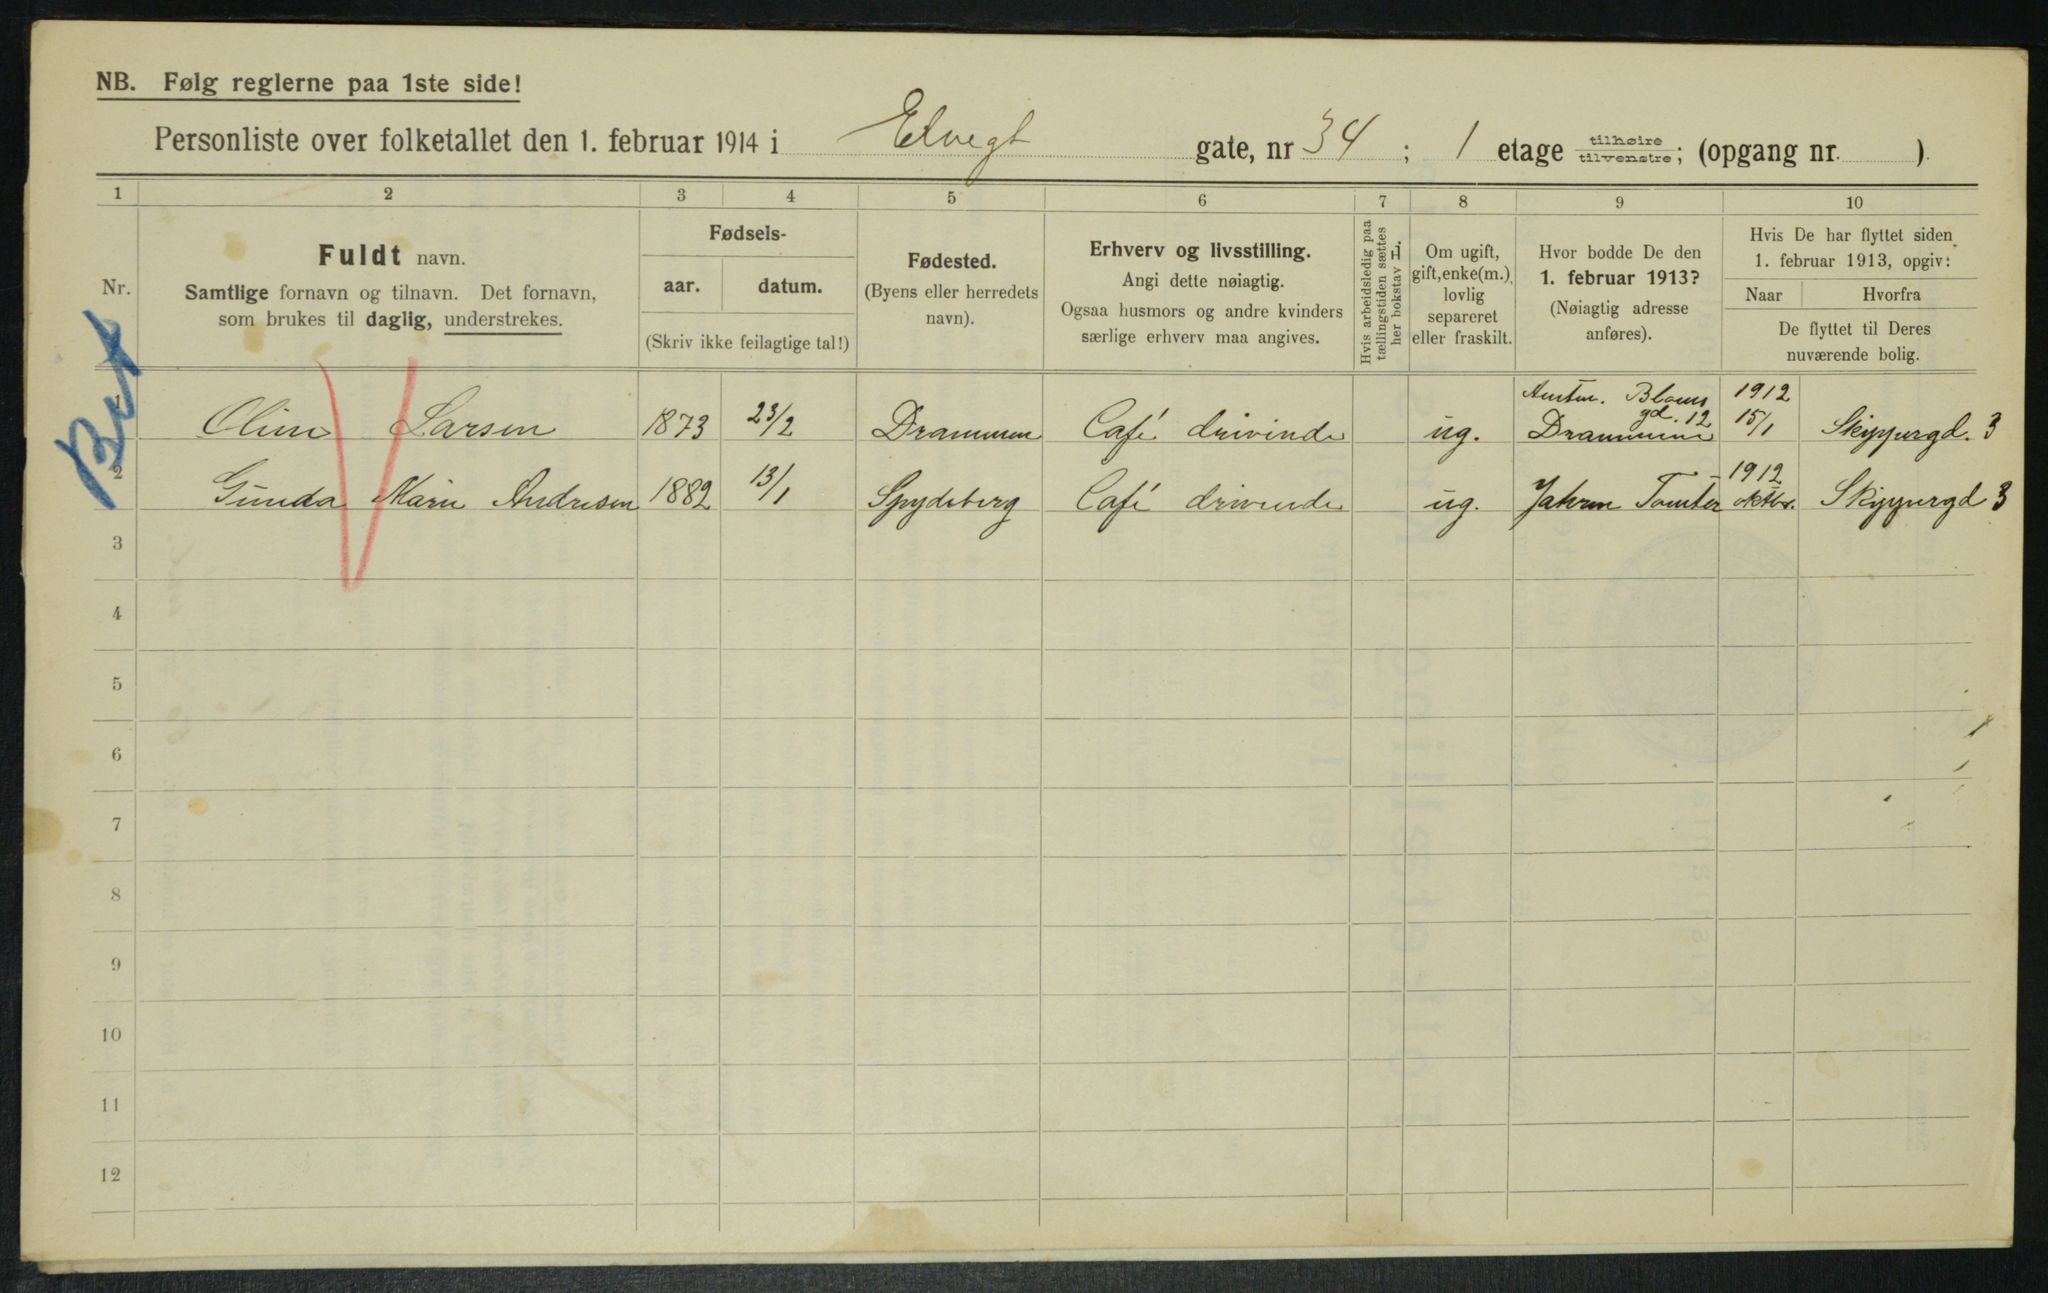 NB. Følg reglerne paa 1ste side!
Personliste over folketallet den 1. februar 1914 i Elvegt gate, nr 34 ; 1 etage tilhøire tilvenstre; (opgang nr. ).
1 2 3 4 5 6 7 8 9 10
Nr.
Fuldt navn.
Samtlige fornavn og tilnavn. Det fornavn,
som brukes til daglig, understrekes.
Fødsels-
aar. datum.
(Skriv ikke feilagtige tal!)
Fødested.
(Byens eller herredets
navn).
Erhverv og livsstilling.
Angi dette nøiagtig.
Ogsaa husmors og andre kvinders
særlige erhverv maa angives.
Hvis arbeidsledig paa
tællingstiden sættes
her bokstav i
Om ugift,
gift, enke(m.),
lovlig
separeret
eller fraskilt.
Hvor bodde De den
1. februar 1913?
(Nøiagtig adresse
anføres).
Hvis De har flyttet siden
1. februar 1913, opgiv:
Naar Hvorfra
De flyttet til Deres
nuværende bolig.
1 Oline Larsen 1873 23/2 Drammen Café drivinde ug. Bloms gd. 12 Drammen 1912 15/1 Skippergd. 3
2 Gunda Marie Andresen 1882 13/1 Spydeberg Café drivende ug. Tomter 1912 oktbr. Skippergd 3
3
4
5
6
7
8
9
10
11
12